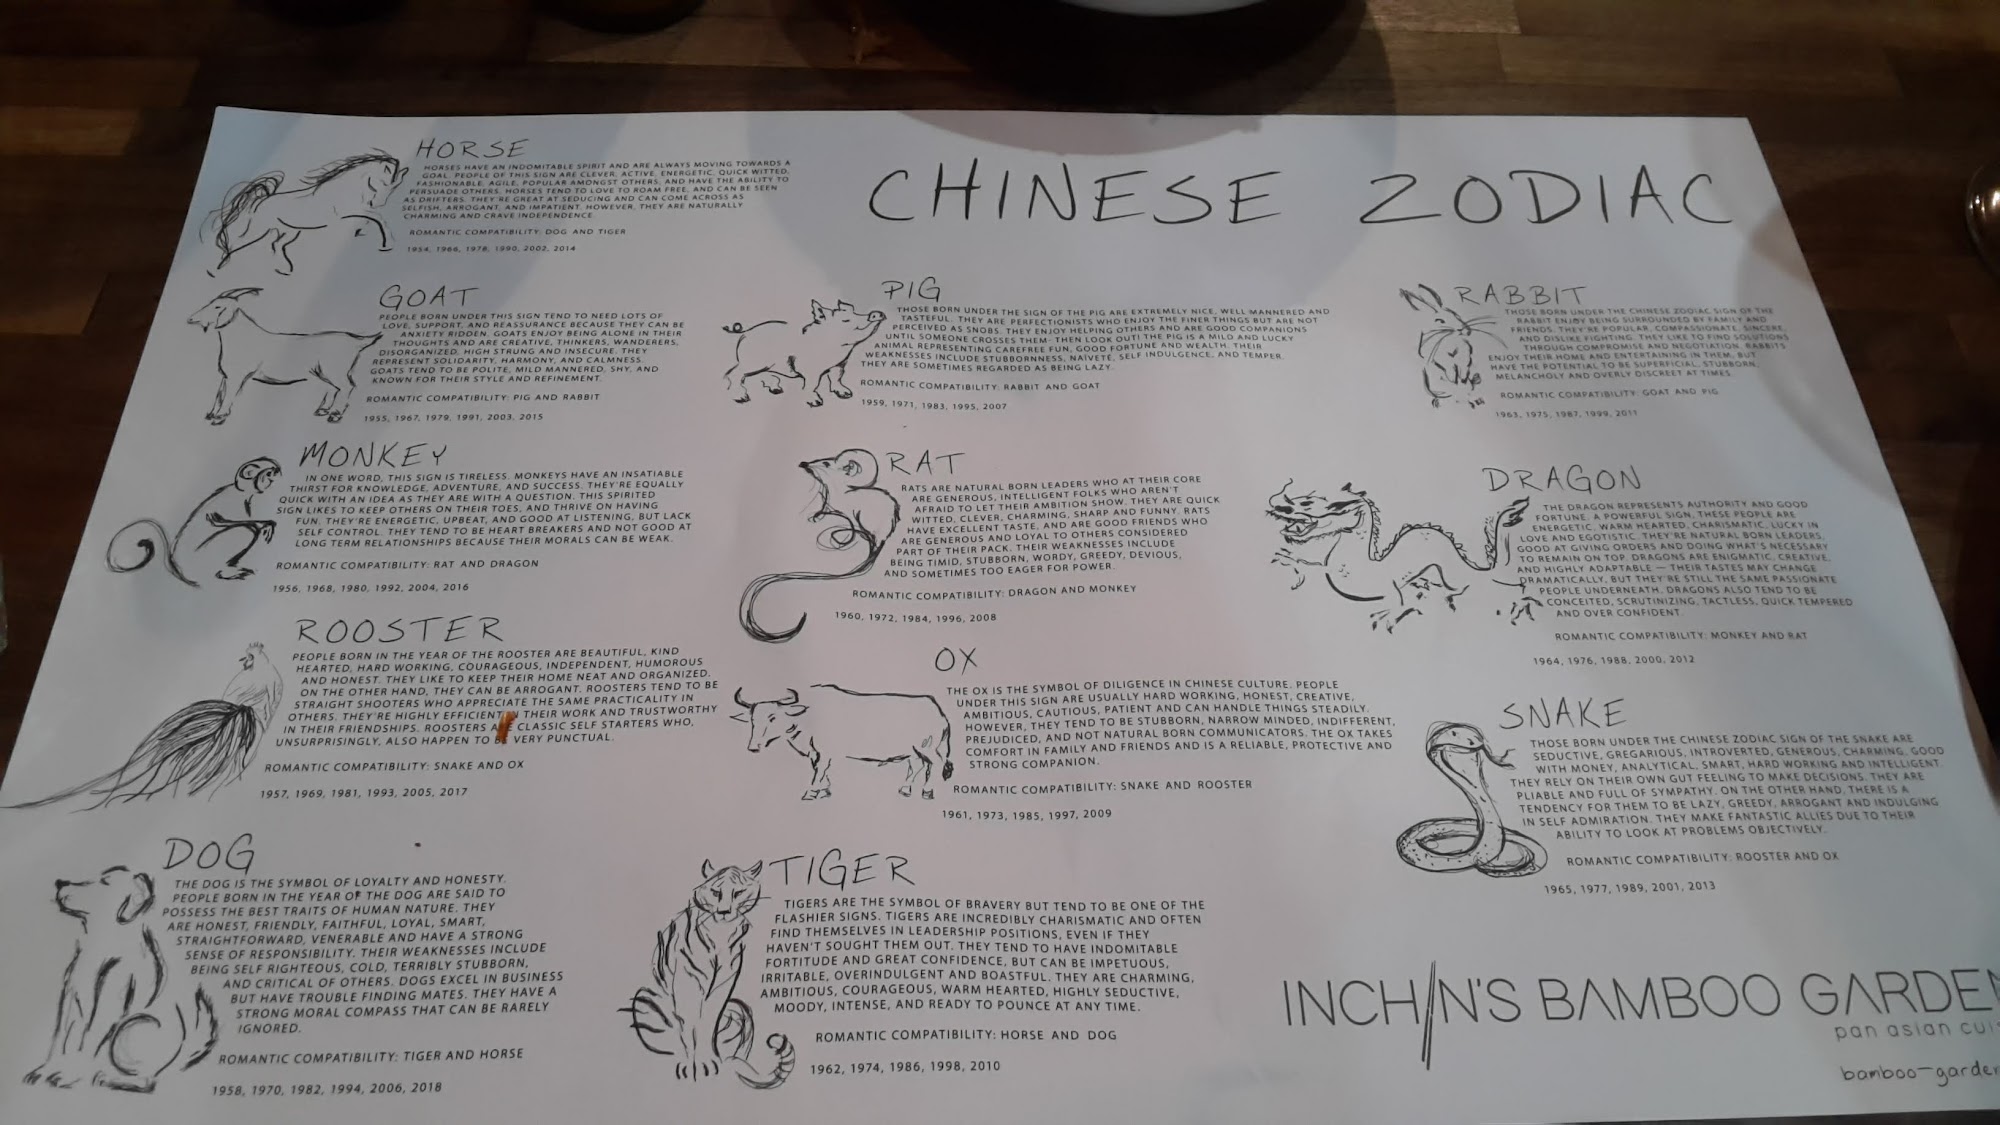 CHINESE ZODIAC
HORSE
HORSES HAVE AN INDOMITABLE SPIRIT AND ARE ALWAYS MOVING TOWARDS A
GOAL. PEOPLE OF THIS SIGN ARE CLEVER, ACTIVE, ENERGETIC, QUICK WITTED,
FASHIONABLE, AGILE, POPULAR AMONGST OTHERS, AND HAVE THE ABILITY TO
PERSUADE OTHERS. HORSES TEND TO LOVE TO ROAM FREE, AND CAN BE SEEN
AS DRIFTERS. THEY'RE GREAT AT SEDUCING AND CAN COME ACROSS AS
SELFISH, ARROGANT, AND IMPATIENT. HOWEVER, THEY ARE NATURALLY
CHARMING AND CRAVE INDEPENDENCE.
ROMANTIC COMPATIBILITY: DOG AND TIGER
1954, 1966, 1978, 1990, 2002, 2014
GOAT
PEOPLE BORN UNDER THIS SIGN TEND TO NEED LOTS OF
LOVE, SUPPORT, AND REASSURANCE BECAUSE THEY CAN BE
ANXIETY RIDDEN. GOATS ENJOY BEING ALONE IN THEIR
THOUGHTS AND ARE CREATIVE, THINKERS, WANDERERS,
DISORGANIZED, HIGH STRUNG AND INSECURE. THEY
REPRESENT SOLIDARITY, HARMONY, AND CALMNESS.
GOATS TEND TO BE POLITE, MILD MANNERED, SHY, AND
KNOWN FOR THEIR STYLE AND REFINEMENT.
ROMANTIC COMPATIBILITY: PIG AND RABBIT
1955, 1967, 1979, 1991, 2003, 2015
MONKEY
IN ONE WORD, THIS SIGN IS TIRELESS. MONKEYS HAVE AN INSATIABLE
THIRST FOR KNOWLEDGE, ADVENTURE, AND SUCCESS. THEY'RE EQUALLY
QUICK WITH AN IDEA AS THEY ARE WITH A QUESTION. THIS SPIRITED
SIGN LIKES TO KEEP OTHERS ON THEIR TOES, AND THRIVE ON HAVING
FUN. THEY'RE ENERGETIC, UPBEAT, AND GOOD AT LISTENING, BUT LACK
SELF CONTROL. THEY TEND TO BE HEART BREAKERS AND NOT GOOD AT
LONG TERM RELATIONSHIPS BECAUSE THEIR MORALS CAN BE WEAK.
ROMANTIC COMPATIBILITY: RAT AND DRAGON
1956, 1968, 1980, 1992, 2004, 2016
ROOSTER
PEOPLE BORN IN THE YEAR OF THE ROOSTER ARE BEAUTIFUL, KIND
HEARTED, HARD WORKING, COURAGEOUS, INDEPENDENT, HUMOROUS
AND HONEST. THEY LIKE TO KEEP THEIR HOME NEAT AND ORGANIZED.
ON THE OTHER HAND, THEY CAN BE ARROGANT. ROOSTERS TEND TO BE
STRAIGHT SHOOTERS WHO APPRECIATE THE SAME PRACTICALITY IN
OTHERS. THEY'RE HIGHLY EFFICIENT IN THEIR WORK AND TRUSTWORTHY
IN THEIR FRIENDSHIPS. ROOSTERS ARE CLASSIC SELF STARTERS WHO,
UNSURPRISINGLY, ALSO HAPPEN TO BE VERY PUNCTUAL.
ROMANTIC COMPATIBILITY: SNAKE AND OX
1957, 1969, 1981, 1993, 2005, 2017
DOG
THE DOG IS THE SYMBOL OF LOYALTY AND HONESTY.
PEOPLE BORN IN THE YEAR OF THE DOG ARE SAID TO
POSSESS THE BEST TRAITS OF HUMAN NATURE. THEY
ARE HONEST, FRIENDLY, FAITHFUL, LOYAL, SMART,
STRAIGHTFORWARD, VENERABLE AND HAVE A STRONG
SENSE OF RESPONSIBILITY. THEIR WEAKNESSES INCLUDE
BEING SELF RIGHTEOUS, COLD, TERRIBLY STUBBORN,
AND CRITICAL OF OTHERS. DOGS EXCEL IN BUSINESS
BUT HAVE TROUBLE FINDING MATES. THEY HAVE A
STRONG MORAL COMPASS THAT CAN BE RARELY
IGNORED.
ROMANTIC COMPATIBILITY: TIGER AND HORSE
1958, 1970, 1982, 1994, 2006, 2018
PIG
THOSE BORN UNDER THE SIGN OF THE PIG ARE EXTREMELY NICE, WELL MANNERED AND
TASTEFUL. THEY ARE PERFECTIONISTS WHO ENJOY THE FINER THINGS BUT ARE NOT
PERCEIVED AS SNOBS. THEY ENJOY HELPING OTHERS AND ARE GOOD COMPANIONS
UNTIL SOMEONE CROSSES THEM- THEN LOOK OUT! THE PIG IS A MILD AND LUCKY
ANIMAL REPRESENTING CAREFREE FUN, GOOD FORTUNE AND WEALTH. THEIR
WEAKNESSES INCLUDE STUBBORNNESS, NAÏVETE, SELF INDULGENCE, AND TEMPER.
THEY ARE SOMETIMES REGARDED AS BEING LAZY.
ROMANTIC COMPATIBILITY: RABBIT AND GOAT
1959, 1971, 1983, 1995, 2007
RAT
RATS ARE NATURAL BORN LEADERS WHO AT THEIR CORE
ARE GENEROUS, INTELLIGENT FOLKS WHO AREN'T
AFRAID TO LET THEIR AMBITION SHOW. THEY ARE QUICK
WITTED, CLEVER, CHARMING, SHARP AND FUNNY. RATS
HAVE EXCELLENT TASTE, AND ARE GOOD FRIENDS WHO
ARE GENEROUS AND LOYAL TO OTHERS CONSIDERED
PART OF THEIR PACK. THEIR WEAKNESSES INCLUDE
BEING TIMID, STUBBORN, WORDY, GREEDY, DEVIOUS,
AND SOMETIMES TOO EAGER FOR POWER.
ROMANTIC COMPATIBILITY: DRAGON AND MONKEY
1960, 1972, 1984, 1996, 2008
OX
THE OX IS THE SYMBOL OF DILIGENCE IN CHINESE CULTURE. PEOPLE
UNDER THIS SIGN ARE USUALLY HARD WORKING, HONEST, CREATIVE,
AMBITIOUS, CAUTIOUS, PATIENT AND CAN HANDLE THINGS STEADILY.
HOWEVER, THEY TEND TO BE STUBBORN, NARROW MINDED, INDIFFERENT,
PREJUDICED, AND NOT NATURAL BORN COMMUNICATORS. THE OX TAKES
COMFORT IN FAMILY AND FRIENDS AND IS A RELIABLE, PROTECTIVE AND
STRONG COMPANION.
ROMANTIC COMPATIBILITY: SNAKE AND ROOSTER
1961, 1973, 1985, 1997, 2009
TIGER
TIGERS ARE THE SYMBOL OF BRAVERY BUT TEND TO BE ONE OF THE
FLASHIER SIGNS. TIGERS ARE INCREDIBLY CHARISMATIC AND OFTEN
FIND THEMSELVES IN LEADERSHIP POSITIONS, EVEN IF THEY
HAVEN'T SOUGHT THEM OUT. THEY TEND TO HAVE INDOMITABLE
FORTITUDE AND GREAT CONFIDENCE, BUT CAN BE IMPETUOUS,
IRRITABLE, OVERINDULGENT AND BOASTFUL. THEY ARE CHARMING,
AMBITIOUS, COURAGEOUS, WARM HEARTED, HIGHLY SEDUCTIVE,
MOODY, INTENSE, AND READY TO POUNCE AT ANY TIME.
ROMANTIC COMPATIBILITY: HORSE AND DOG
1962, 1974, 1986, 1998, 2010
RABBIT
THOSE BORN UNDER THE CHINESE ZODIAC SIGN OF THE
RABBIT ENJOY BEING SURROUNDED BY FAMILY AND
FRIENDS. THEY'RE POPULAR, COMPASSIONATE, SINCERE,
AND DISLIKE FIGHTING. THEY LIKE TO FIND SOLUTIONS
THROUGH COMPROMISE AND NEGOTIATION. RABBITS
ENJOY THEIR HOME AND ENTERTAINING IN THEM, BUT
HAVE THE POTENTIAL TO BE SUPERFICIAL, STUBBORN,
MELANCHOLY AND OVERLY DISCREET AT TIMES.
ROMANTIC COMPATIBILITY: GOAT AND PIG
1963, 1975, 1987, 1999, 2011
DRAGON
THE DRAGON REPRESENTS AUTHORITY AND GOOD
FORTUNE. A POWERFUL SIGN, THESE PEOPLE ARE
ENERGETIC, WARM HEARTED, CHARISMATIC, LUCKY IN
LOVE AND EGOTISTIC. THEY'RE NATURAL BORN LEADERS,
GOOD AT GIVING ORDERS AND DOING WHAT'S NECESSARY
TO REMAIN ON TOP. DRAGONS ARE ENIGMATIC, CREATIVE,
AND HIGHLY ADAPTABLE — THEIR TASTES MAY CHANGE
DRAMATICALLY, BUT THEY'RE STILL THE SAME PASSIONATE
PEOPLE UNDERNEATH. DRAGONS ALSO TEND TO BE
CONCEITED, SCRUTINIZING, TACTLESS, QUICK TEMPERED
AND OVER CONFIDENT.
ROMANTIC COMPATIBILITY: MONKEY AND RAT
1964, 1976, 1988, 2000, 2012
SNAKE
THOSE BORN UNDER THE CHINESE ZODIAC SIGN OF THE SNAKE ARE
SEDUCTIVE, GREGARIOUS, INTROVERTED, GENEROUS, CHARMING, GOOD
WITH MONEY, ANALYTICAL, SMART, HARD WORKING AND INTELLIGENT.
THEY RELY ON THEIR OWN GUT FEELING TO MAKE DECISIONS. THEY ARE
PLIABLE AND FULL OF SYMPATHY. ON THE OTHER HAND, THERE IS A
TENDENCY FOR THEM TO BE LAZY, GREEDY, ARROGANT AND INDULGING
IN SELF ADMIRATION. THEY MAKE FANTASTIC ALLIES DUE TO THEIR
ABILITY TO LOOK AT PROBLEMS OBJECTIVELY.
ROMANTIC COMPATIBILITY: ROOSTER AND OX
1965, 1977, 1989, 2001, 2013
INCHIN'S BAMBOO GARDEN
pan asian cuis
bamboo-garden